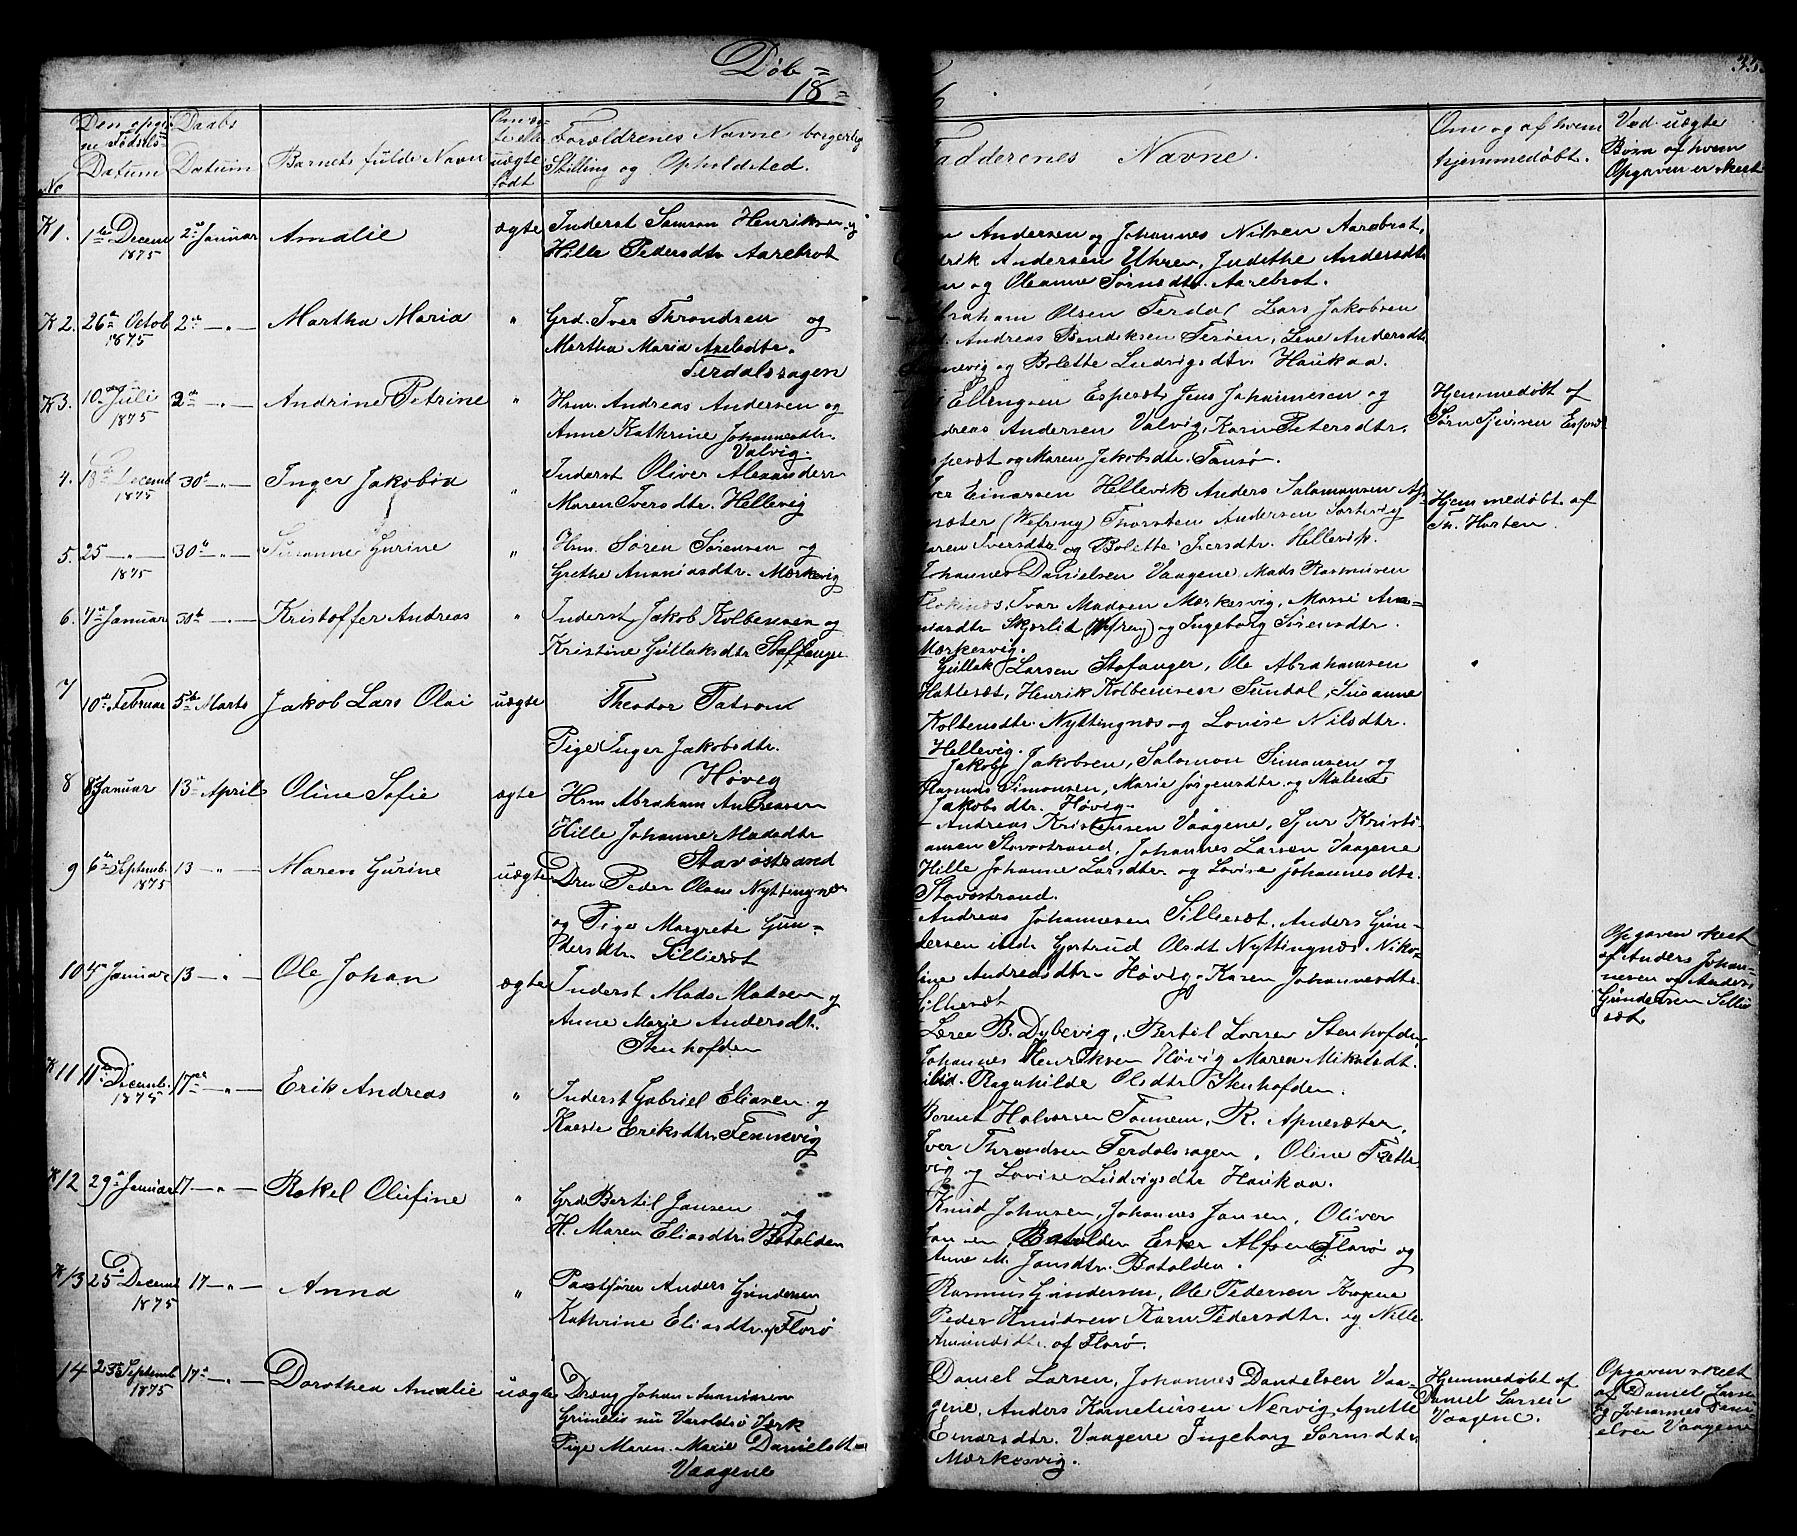 Døb=
18=
33
No
Den opgi
ne Fødsels
Datum
Daabs
Datum
Barnets fulde Navn
Om æg-
te eller
uægte
født
Forældrenes Navne borgerlig
Stilling og Opholdsted.
Fadderenes Navne.
Om og af hvem
hjemmedøbt.
Ved uægte
Børn af hvem
Opgaven er skeet
K 1. 1te Decem 1875 2den Januar Amalie ægte Inderst Samson Henriksen og
Hille Pedersdtr Aarebrot
Andersen og Johannes Nilsen Aarebrot,
drik Andersen Uhren, Judithe Andersdtr
og Oleanne Sørnsdtr. Aarebrot.
K 2. 26de Octob 1875 2den —"— Martha Maria " Grd. Iver Throndsen og
Martha Maria Axelsdtr.
Terdalssagen
braham Olsen Terdal Lars Jakobsen
Andreas Bendiksen Terøen, Lene Andersdtr
nevig og Bolette Ludvigsdtr. Haukaa.
K 3. 10de Juli 1875 2den —"— Andrine Petrine " Hsm. Andreas Andersen og
Anne Kathrine Johannesdtr.
Valvig.
Ellingsen Espesæt Jens Johannesen og
dreas Andersen Valvig, Karn Petersdtr.
spesæt og Maren Jakobsdtr. Tansø.
Hjemmedøbt af
Sørn Sjursen Espesæt
4. 18de Decemb 1875 30te —"— Inger Jakobia " Inderst Oliver Alexandersn
Maren Iversdtr. Hellevig
Iver Einarsen Hellevik Anders Salamonsen
sæter (Vefring) Thorsten Andersen Sortevig
aren Iversdtr og Bolette Iversdtr. Hellevik.
Hjemmedøbt af
Th. Horten.
5. 25 —"— 1875 30te —"— Susanne Gurine " Hsm. Søren Sørensen og
Grethe Ananiasdtr. Mærkesvig
Johannes Danielsen Vaagene Mads Rasmusen
Flokenæs, Ivar Madsen Mærkesvig, Marie Ana=
niasdtr Skjerlid (Vefring) og Ingeborg Sørensdtr.
Mærkesvig.
6. 4de Januar 30te —"— Kristoffer Andreas " Inderst Jakob Kolbensen og
Kristine Gullaksdtr Staffanger
Gullak Larsen Stafanger, Ole Abrahamsen
Hattesæt, Henrik Kolbensen Sundal, Susanne
Kolbensdtr. Nyttingnæs og Lovise Nilsdtr.
Hellevig.
7 10de Februar 5te Marts Jakob Lars Olai uægte Theodor Patson
Pige Inger Jakobsdtr.
Høvig
Jakob Jakobsen, Salomon Simonsen og
Rasmus Simonsen, Marie Jørgensdtr og Malene
Jakobsdtr. Høvig.
8 8de Januar 13de April Oline Sofie ægte Hsm Abraham Andreasen
Hille Johanne Madsdtr
Stavøstrand
Andreas Kristensen Vaagene, Sjur Kristi-
ansen Stavøstrand, Johannes Larsen Vaagene
Hille Johanne Larsdtr og Lovise Johannesdtr.
Stavøstrand.
9 6te Septemb. 1875 13 —"— Maren Gurine uægte Dren Peder Olsen Nyttingnæs
og Pige Margrete Gun-
dersdtr. Silliesæt
Andreas Johannesen Sillesæt, Anders Gun-
dersen ibid. Gjertrud Olsdt Nyttingnæs. Niko-
line Andreasdtr. Høvig, Karen Johannesdtr.
Silliesæt
Opgaven skeet
af Anders Johan-
nesen og Anders
Gundersen Sillie
sæt
10 4de Januar 13 —"— Ole Johan ægte Inderst Mads Madsen og
Anne Marie Andersdtr.
Stenhofden
Lærer B. Dybevig, Bertil Larsen Stenhofden
Johannes Henriksen Høvig Maren Mikalsdt.
ibid. Ragnhilde Olsdtr Stenhofden.
K 11 11te Decemb. 1875 17de —"— Erik Andreas " Inderst Gabriel Eliasen og
Kaesie Eriksdtr. Tennevig
Berent Halvorsen Tonnem, R. Apnesæter,
Iver Throndsen Terdalssagen, Oline
vig og Lovise Ludvigsdtr Haukaa.
K 12 29de Januar 17 —"— Rakel Olufine " Grd. Bertil Jansen og
H. Maren Eliasdtr. Batalden
Knud Johnsen, Johannes Jansen, Oliver
Jansen, Batalden Esker Alfsen Florø og
Anne M. Jansdtr. Batalden.
K 13 25de Decemb 1875 17 —"— Anna " Postfører Anders Gundersen
Kathrine Eliasdtr. af Florø
Rasmus Gundersen, Ole Pedersen Krogene
Peder Knudsen Karn Pedersdtr. og Nille
Amundsdtr. af Florø.
14 23de Septemb 1875 17de —"— Dorothea Amalie uægte Dreng Johan Ananiasen
Grimelis nu Varaldsø Værk
Pige Maren Marie Danielsdtr
Vaagene
Daniel Larsen, Johannes Danielsen Vaa-
gene, Anders Korneliussen Nervig Agnette
Einarsdtr. Vaagene Ingeborg Sørnsdtr
Mærkesvig.
Hjemmedøbt af
Daniel Larsen
Vaagene.
Opgaven skeet
af Daniel Larsen
og Johannes Dani
elsen Vaagene